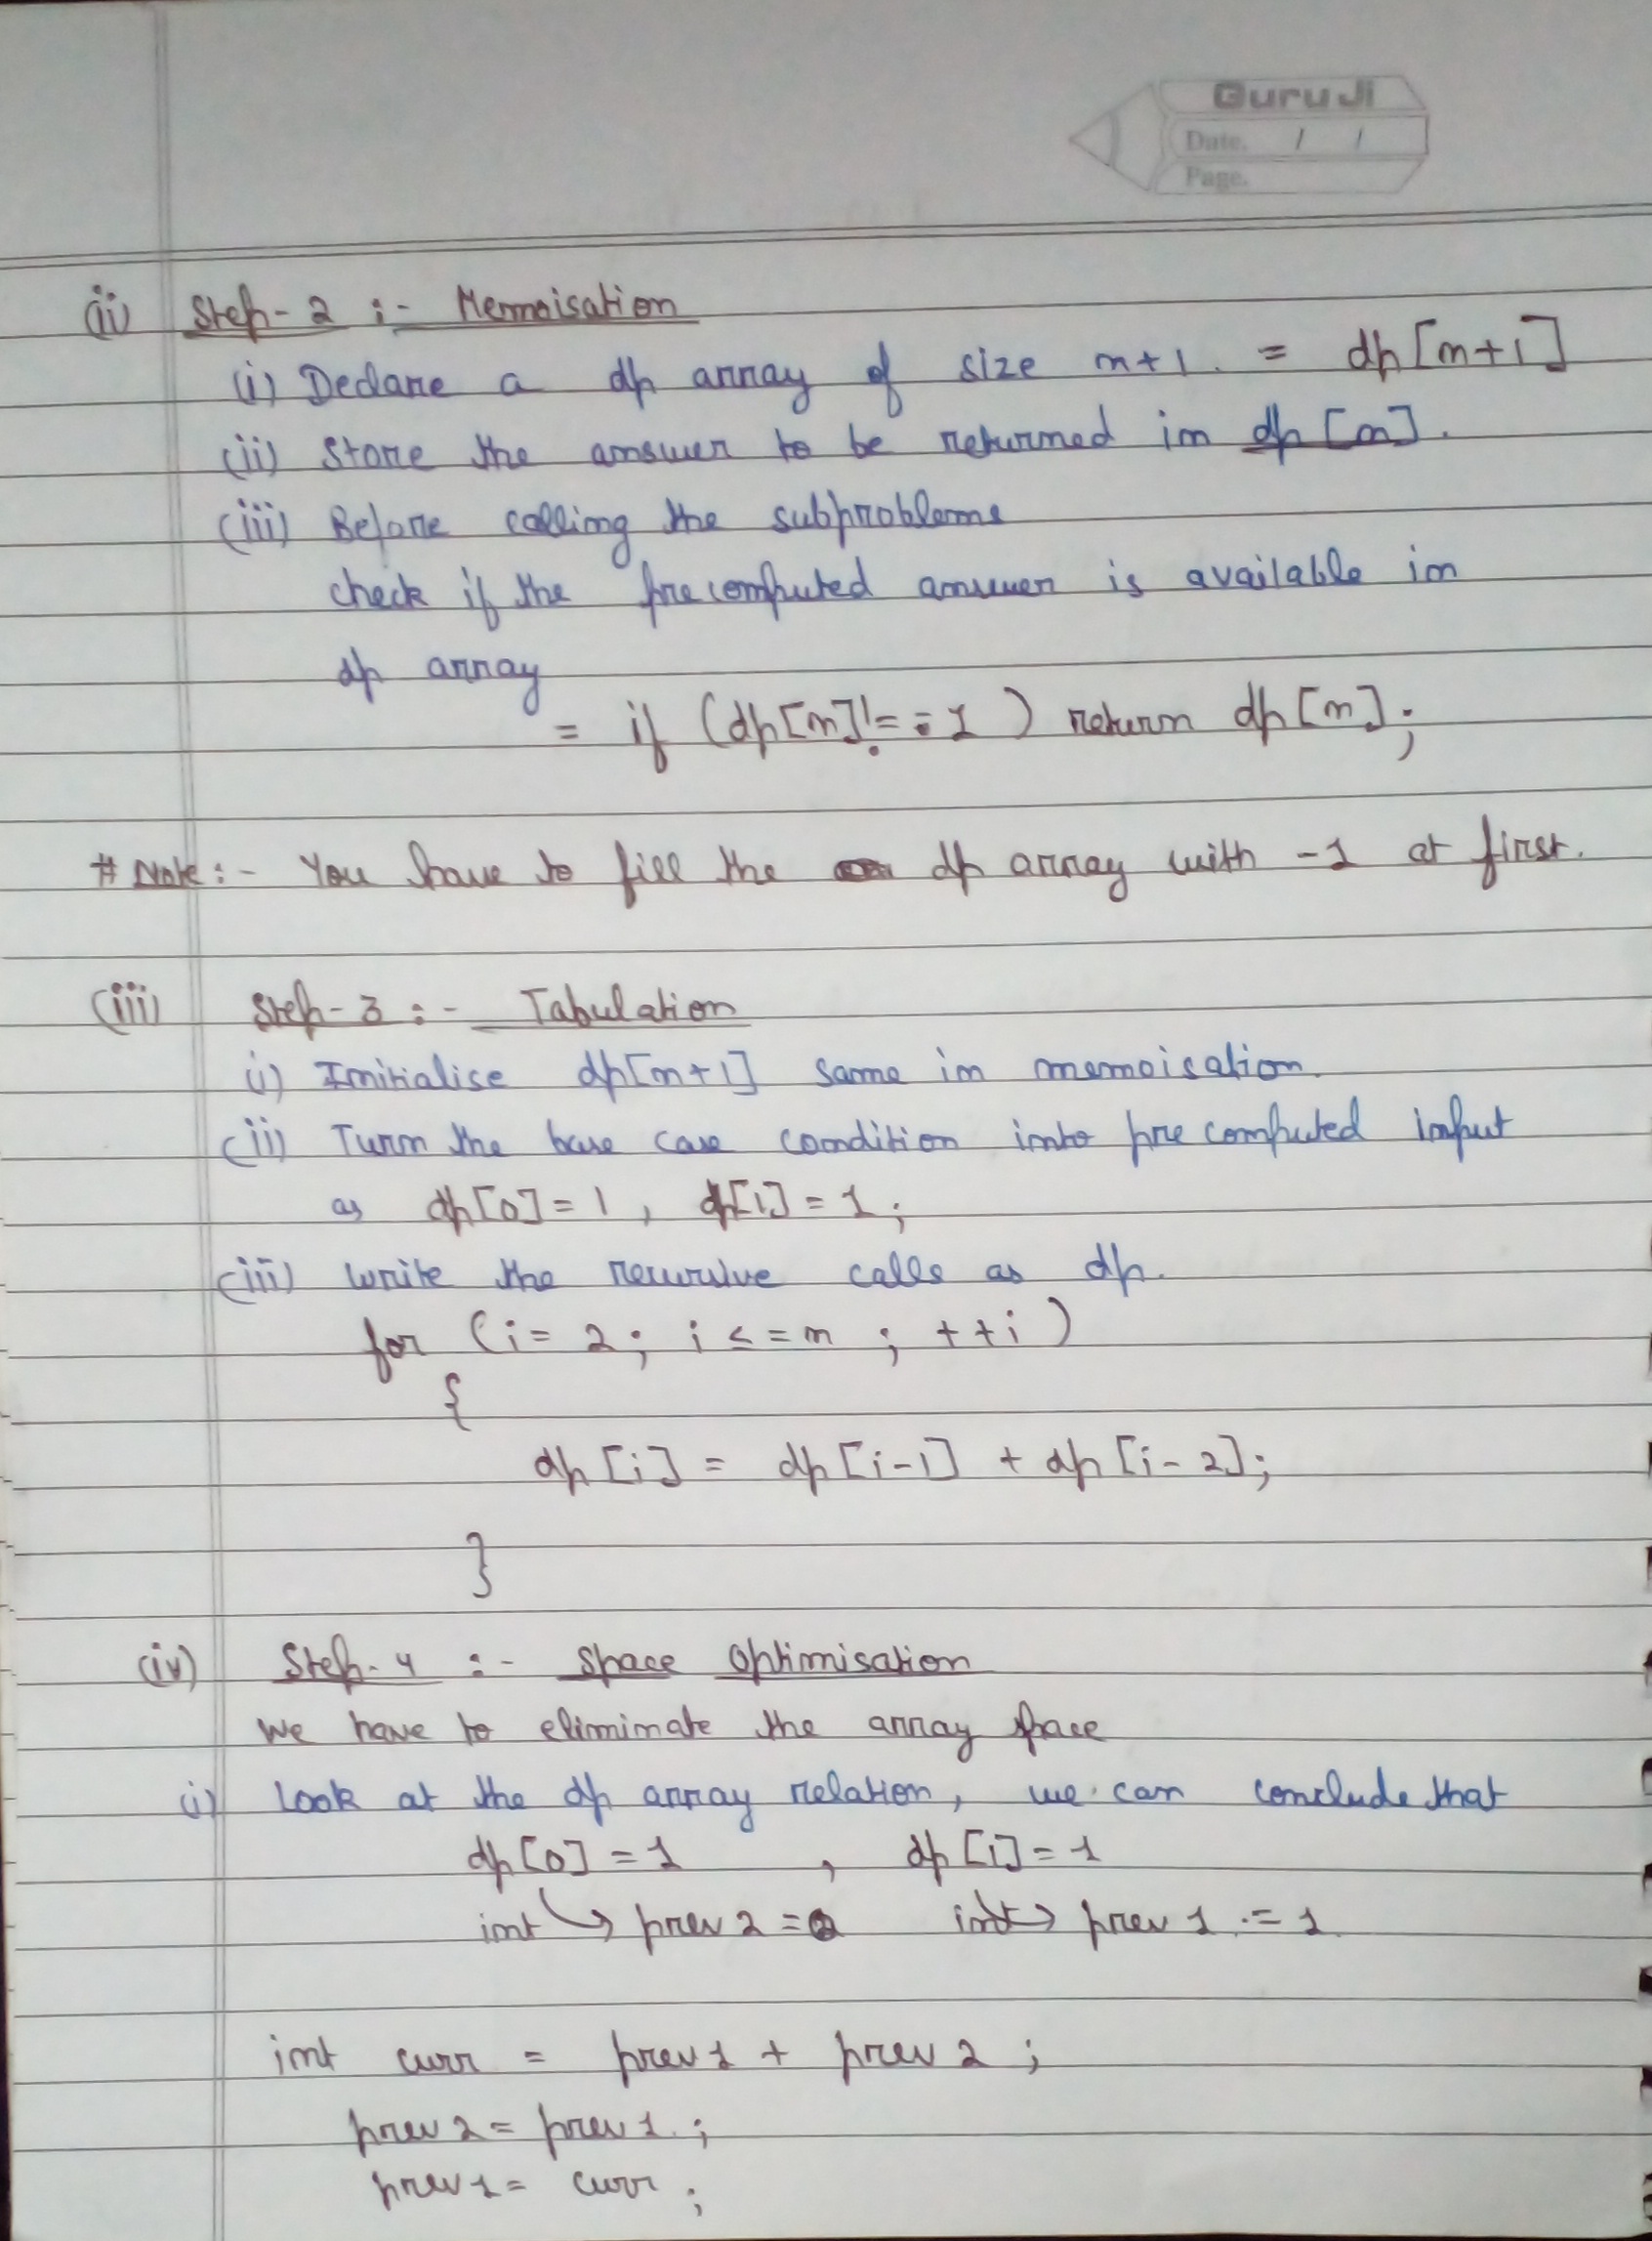 Guru Ji
Date. / /
Page.
(ii) Step-2 :- Memoisation
(i) Declare a dp array of size n+1. = dp[n+1]
(ii) Store the answer to be returned in dp[n].
(iii) Before calling the subproblems
check if the precomputed answer is available in
dp array
= if (dp[n] != -1) return dp[n];
# Note :- You have to fill the dp array with -1 at first.
(iii) Step-3 :- Tabulation
(i) Initialise dp[n+1] same in memoisation.
(ii) Turn the base case condition into precomputed input
as dp[0] = 1, dp[1] = 1;
(iii) write the recursive calls as dp.
for (i = 2; i <= n ; ++i)
{
dp[i] = dp[i-1] + dp[i-2];
}
(iv) Step-4 :- Space Optimisation
We have to eliminate the array space
(i) Look at the dp array relation, we can conclude that
dp[0] = 1 , dp[1] = 1
int → prev2 = int → prev1 = 1
int curr = prev1 + prev2 ;
prev2 = prev1 ;
prev1 = curr ;